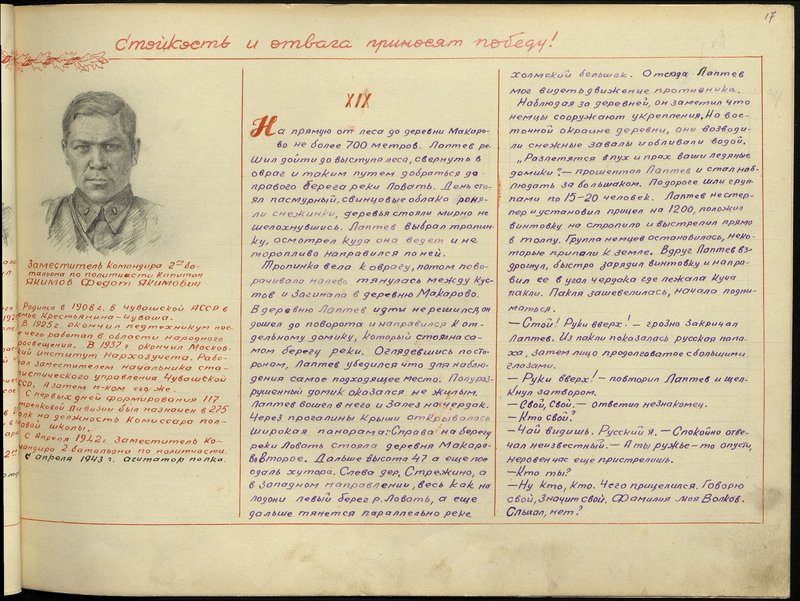 17
Стойкость и отвага приносят победу!
Заместитель командира 2го ба-
тальона по политчасти капитан
ЯКИМОВ ФЕДОТ ЯКИМОВИЧ
Родился в 1908 г. в Чувашской АССР в
Крестьянина-чуваша.
В 1925 г. окончил педтехникум пос-
чего работал в области народного
росвещения. В 1937 г. окончил Москов-
ский институт Нархозучета. Рабо-
Заместителем начальника ста-
тистического управления Чувашской
ССР, а затем н-ком его же.
С первых дней формирования 117
Дивизии был назначен в 275
на должность Комиссара пол-
вой школы.
С Апреля 1942 г. Заместитель Ко-
мандира 2 батальона по политчасти.
С апреля 1943 г. агитатор полка.
XIX
На прямую от леса до деревни Макаро-
во не более 700 метров. Лаптев ре-
шил дойти до выступа леса, свернуть в
овраг и таким путем добраться до
правого берега реки Ловать. День сто-
ял пасмурный, свинцовые облака роня-
ли снежинки, деревья стояли мирно не
шелохнувшись. Лаптев выбрал тропин-
ку, осмотрел куда она ведет и не
торопливо направился по ней.
Тропинка вела к оврагу, потом пово-
рачивала налево тянулась между кус-
тов и загинала в деревню Макарово.
В деревню Лаптев идти не решился, он
дошел до поворота и направился к от-
дельному домику, который стоял на са-
мом берегу реки. Оглядевшись по сто-
ронам, Лаптев убедился что для наблю-
дения самое подходящее место. Полураз-
рушенный домик оказался не жилым,
Лаптев вошел в него и залез на чердак.
Через прогалины крыши открывалась
широкая панорама: Справа на берегу
реки Ловать стояла деревня Макаро-
во Второе. Дальше высота 47 а еще пое-
одаль хутора. Слева дер. Стрежино, а
в западном направлении, весь как на
ладони левый берег р. Ловать, а еще
дальше тянется параллельно реке
холмский большак. Отсюда Лаптев
мог видеть движение противника.
Наблюдая за деревней, он заметил что
немцы сооружают укрепления. На вос-
точной окраине деревни, они возводи-
ли снежные завалы и обливали водой.
„Разлетятся в пух и прох ваши ледяные
домики". — прошептал Лаптев и стал наб-
людать за большаком. По дороге шли груп-
пами по 15-20 человек. Лаптев нестер-
пел и установил прицел на 1200, положил
винтовку на стропило и выстрелил прямо
в толпу. Группа немцев остановилась, неко-
торые припали к земле. Вдруг Лаптев вз-
дрогнул, быстро зарядил винтовку и напра-
вил ее в угол чердака где лежала куча
пакли. Пакля зашевелилась, начала подни-
маться.
— Стой! Руки вверх! — грозно закричал
Лаптев. Из пакли показалась русая голо-
ва, затем лицо продолговатое с большими
глазами.
— Руки вверх! — повторил Лаптев и щел-
кнул затвором.
— Свой, Свой. — ответил незнакомец.
— Кто свой?
— Чай видишь. Русский я. — Спокойно отве-
чал неизвестный. — А ты ружье-то опусти,
неровен час еще пристрелишь.
— Кто ты?
— Ну кто, кто. Чего прицелился. Говорю
свой, значит свой. Фамилия моя Волков.
Слыхал, нет?